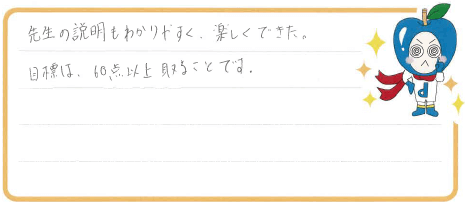 先生の説明もわかりやすく、楽しくできた。
目標は、60点以上取ることです。
d